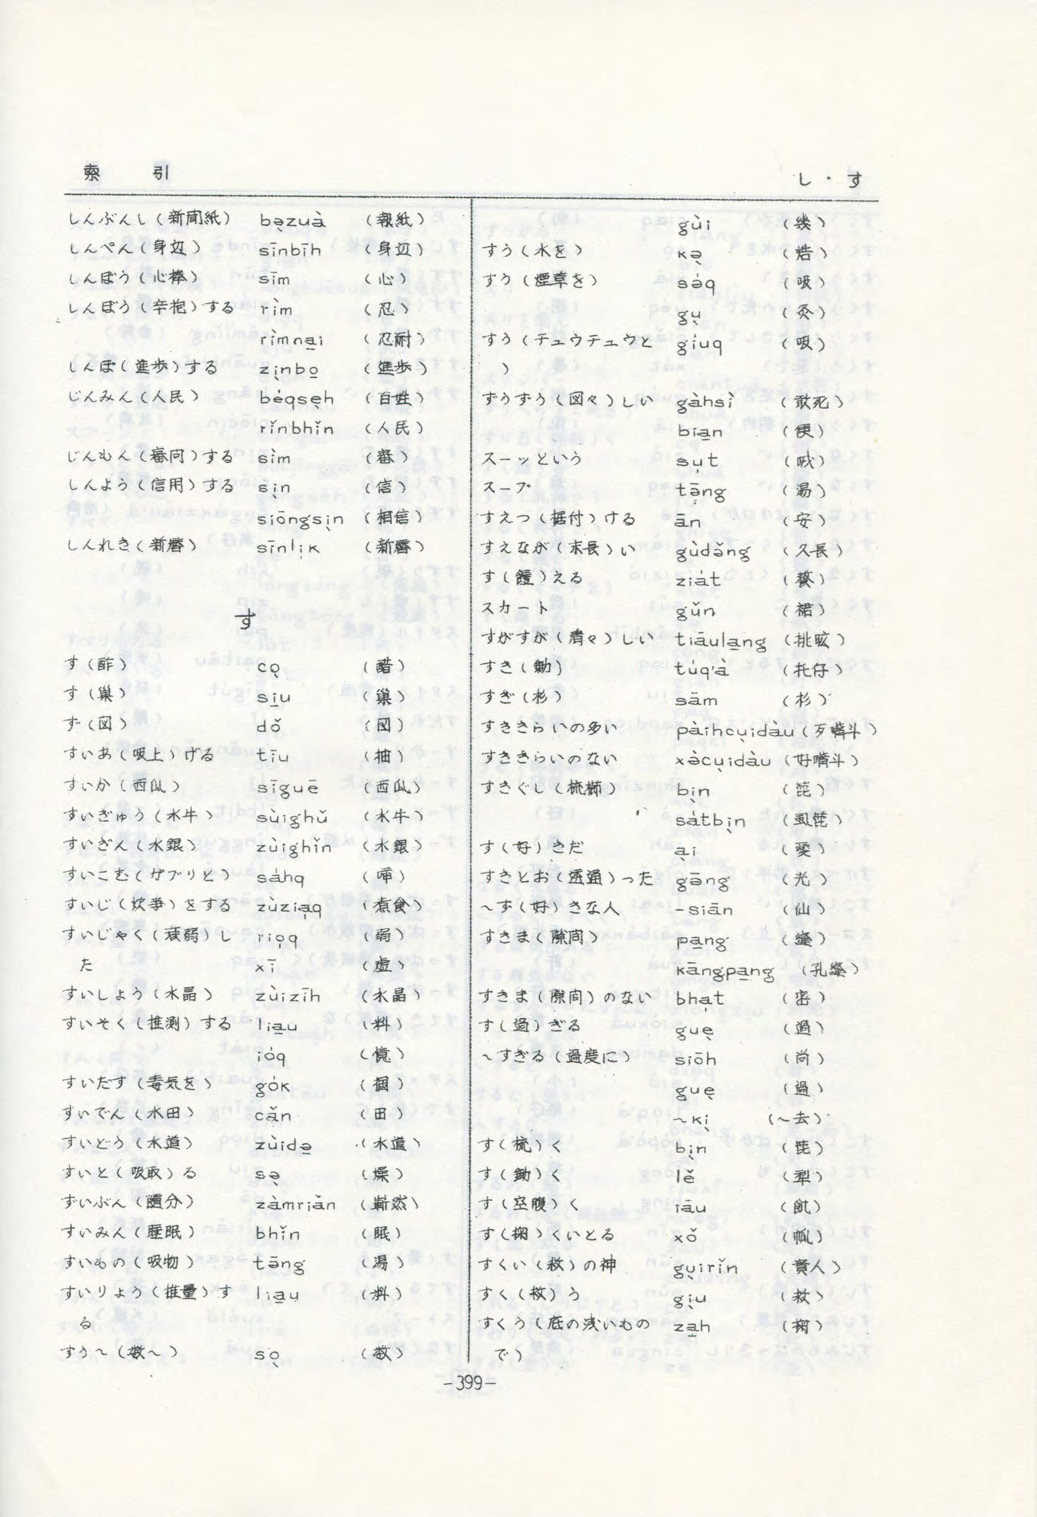 索 引
し・す
しんぶんし(新聞紙) bə̱zuà (報紙)
しんぺん(身辺) sīnbīh (身辺)
しんぼう(心棒) sīm (心)
しんぼう(辛抱)する rìm (忍)
rìmna̱i (忍耐)
しんぽ(進歩)する zi̱nbo̱ (進歩)
じんみん(人民) béqsẹh (百姓)
rǐnbhǐn (人民)
じんもん(審問)する sìm (審)
しんよう(信用)する sịn (信)
siōngsịn (相信)
しんれき(新暦) sīnlịk (新曆)
す
す(酢) cọ (醋)
す(巣) si̱u (巢)
ず(図) dǒ (図)
すいあ(吸上)げる tīu (抽)
すいか(西瓜) sīguē (西瓜)
すいぎゅう(水牛) sùighǔ (水牛)
すいぎん(水銀) zùighǐn (水銀)
すいこむ(ガブリと) sáhq
すいじ(炊事)をする zùziạq (煮食)
すいじゃく(衰弱)し riọq (弱)
た xī (虚)
すいしょう(水晶) zùizīh (水晶)
すいそく(推測)する lia̱u (料)
ióq (憶)
すいだす(毒気を) gók
すいでん(水田) cǎn (田)
すいどう(水道) zùidə̱ (水道)
すいと(吸取)る sə̣ (燥)
ずいぶん(随分) zàmriǎn (嶄然)
すいみん(睡眠) bhǐn (眠)
すいもの(吸物) tāng (湯)
すいりょう(推量)す lia̱u (料)
る
すう~(数~) sọ (数)
gùi (幾)
すう(水を) kə̣
すう(煙草を) sáq (吸)
gụ (灸)
すう(チュウチュウと giuq (吸)
)
ずうずう(図々)しい gàhsì (敢死)
bia̱n (便)
スーッという sụt
スープ tāng (湯)
すえつ(据付)ける ān (安)
すえなが(末長)い gùdə̌ng (久長)
す(饐)える ziát
スカート gǔn (裙)
すがすが(清々)しい tiāula̱ng
すき(鋤) túq'à (托仔)
すぎ(杉) sām (杉)
すききらいの多い pàihcụidàu (歹嘴斗)
すききらいのない xàcụidàu (好嘴斗)
すきぐし(梳櫛) bịn (笓)
sátbịn (虱笓)
す(好)きだ ại (愛)
すきとお(透通)った gə̄ng (光)
~す(好)きな人 -siān (仙)
すきま(隙間) pa̱ng (縫)
kāngpa̱ng (孔縫)
すきま(隙間)のない bhạt (密)
す(過)ぎる guẹ (過)
~すぎる(過度に) siōh (尚)
guẹ (過)
~kị (~去)
す(梳)く bịn (笓)
す(鋤)く lě (犁)
す(空腹)く iāu (飢)
す(掬)くいとる xǒ
すくい(救)の神 gụirǐn (貴人)
すく(救)う gịu (救)
すくう(底の浅いもの za̱h
で)
-399-